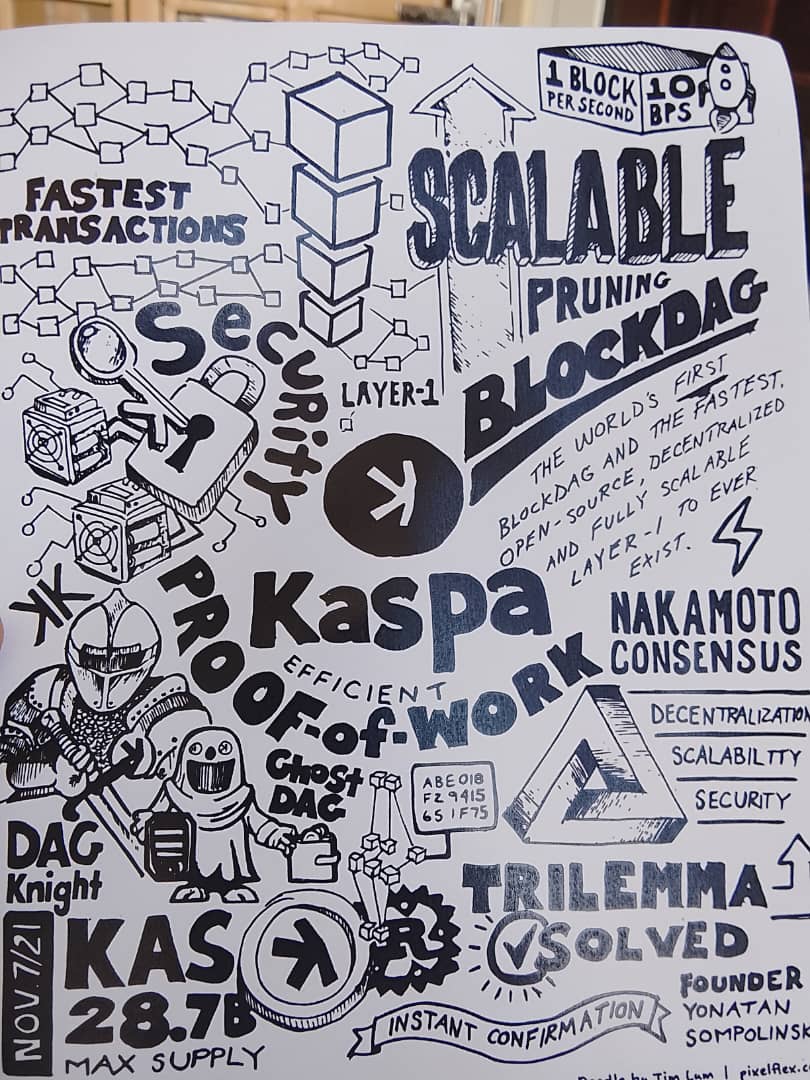 1 BLOCK
PER SECOND
10
BPS
SCALABLE
FASTEST
TRANSACTIONS
PRUNING
BLOCKDAG
SeCURitY
LAYER-1
THE WORLD'S FIRST
BLOCKDAG AND THE FASTEST,
OPEN-SOURCE, DECENTRALIZED
AND FULLY SCALABLE
LAYER-1 TO EVER
EXIST.
Kaspa
EFFICIENT
PROOF-of-WORK
NAKAMOTO
CONSENSUS
DECENTRALIZATION
SCALABILTTY
SECURITY
GhOST
DAG
ABE018
FZ9415
651F75
DAG
Knight
TRILEMMA
SOLVED
NOV. 7/21
KAS
28.7B
MAX SUPPLY
R
INSTANT CONFIRMATION
FOUNDER
YONATAN
SOMPOLINSK
Doodle by Tim Lum | pixelflex.